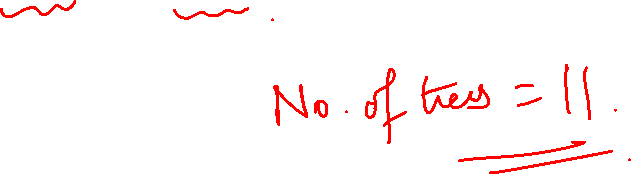 No. of tress = 11.